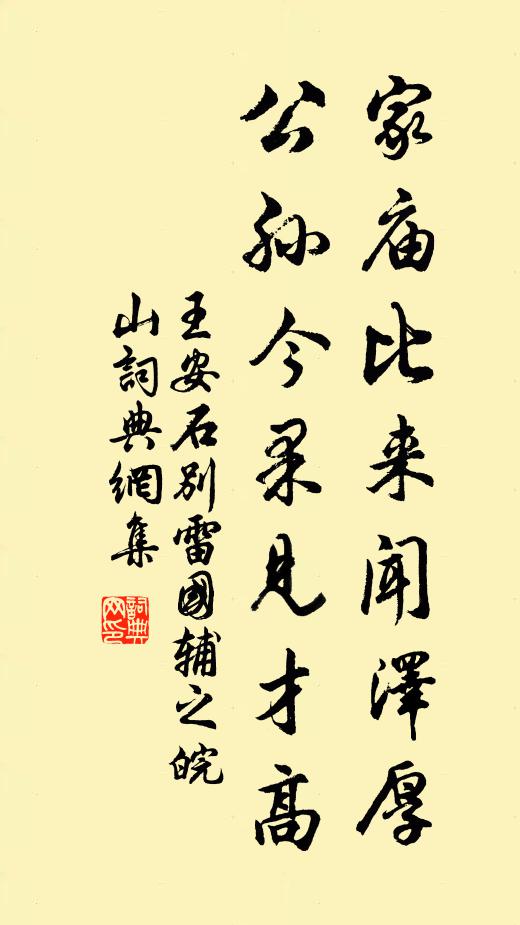 家庙比来闻澤厚
公孙今果见才高
王安石别雷國辅之皖
山詞典網集
詞典
网印